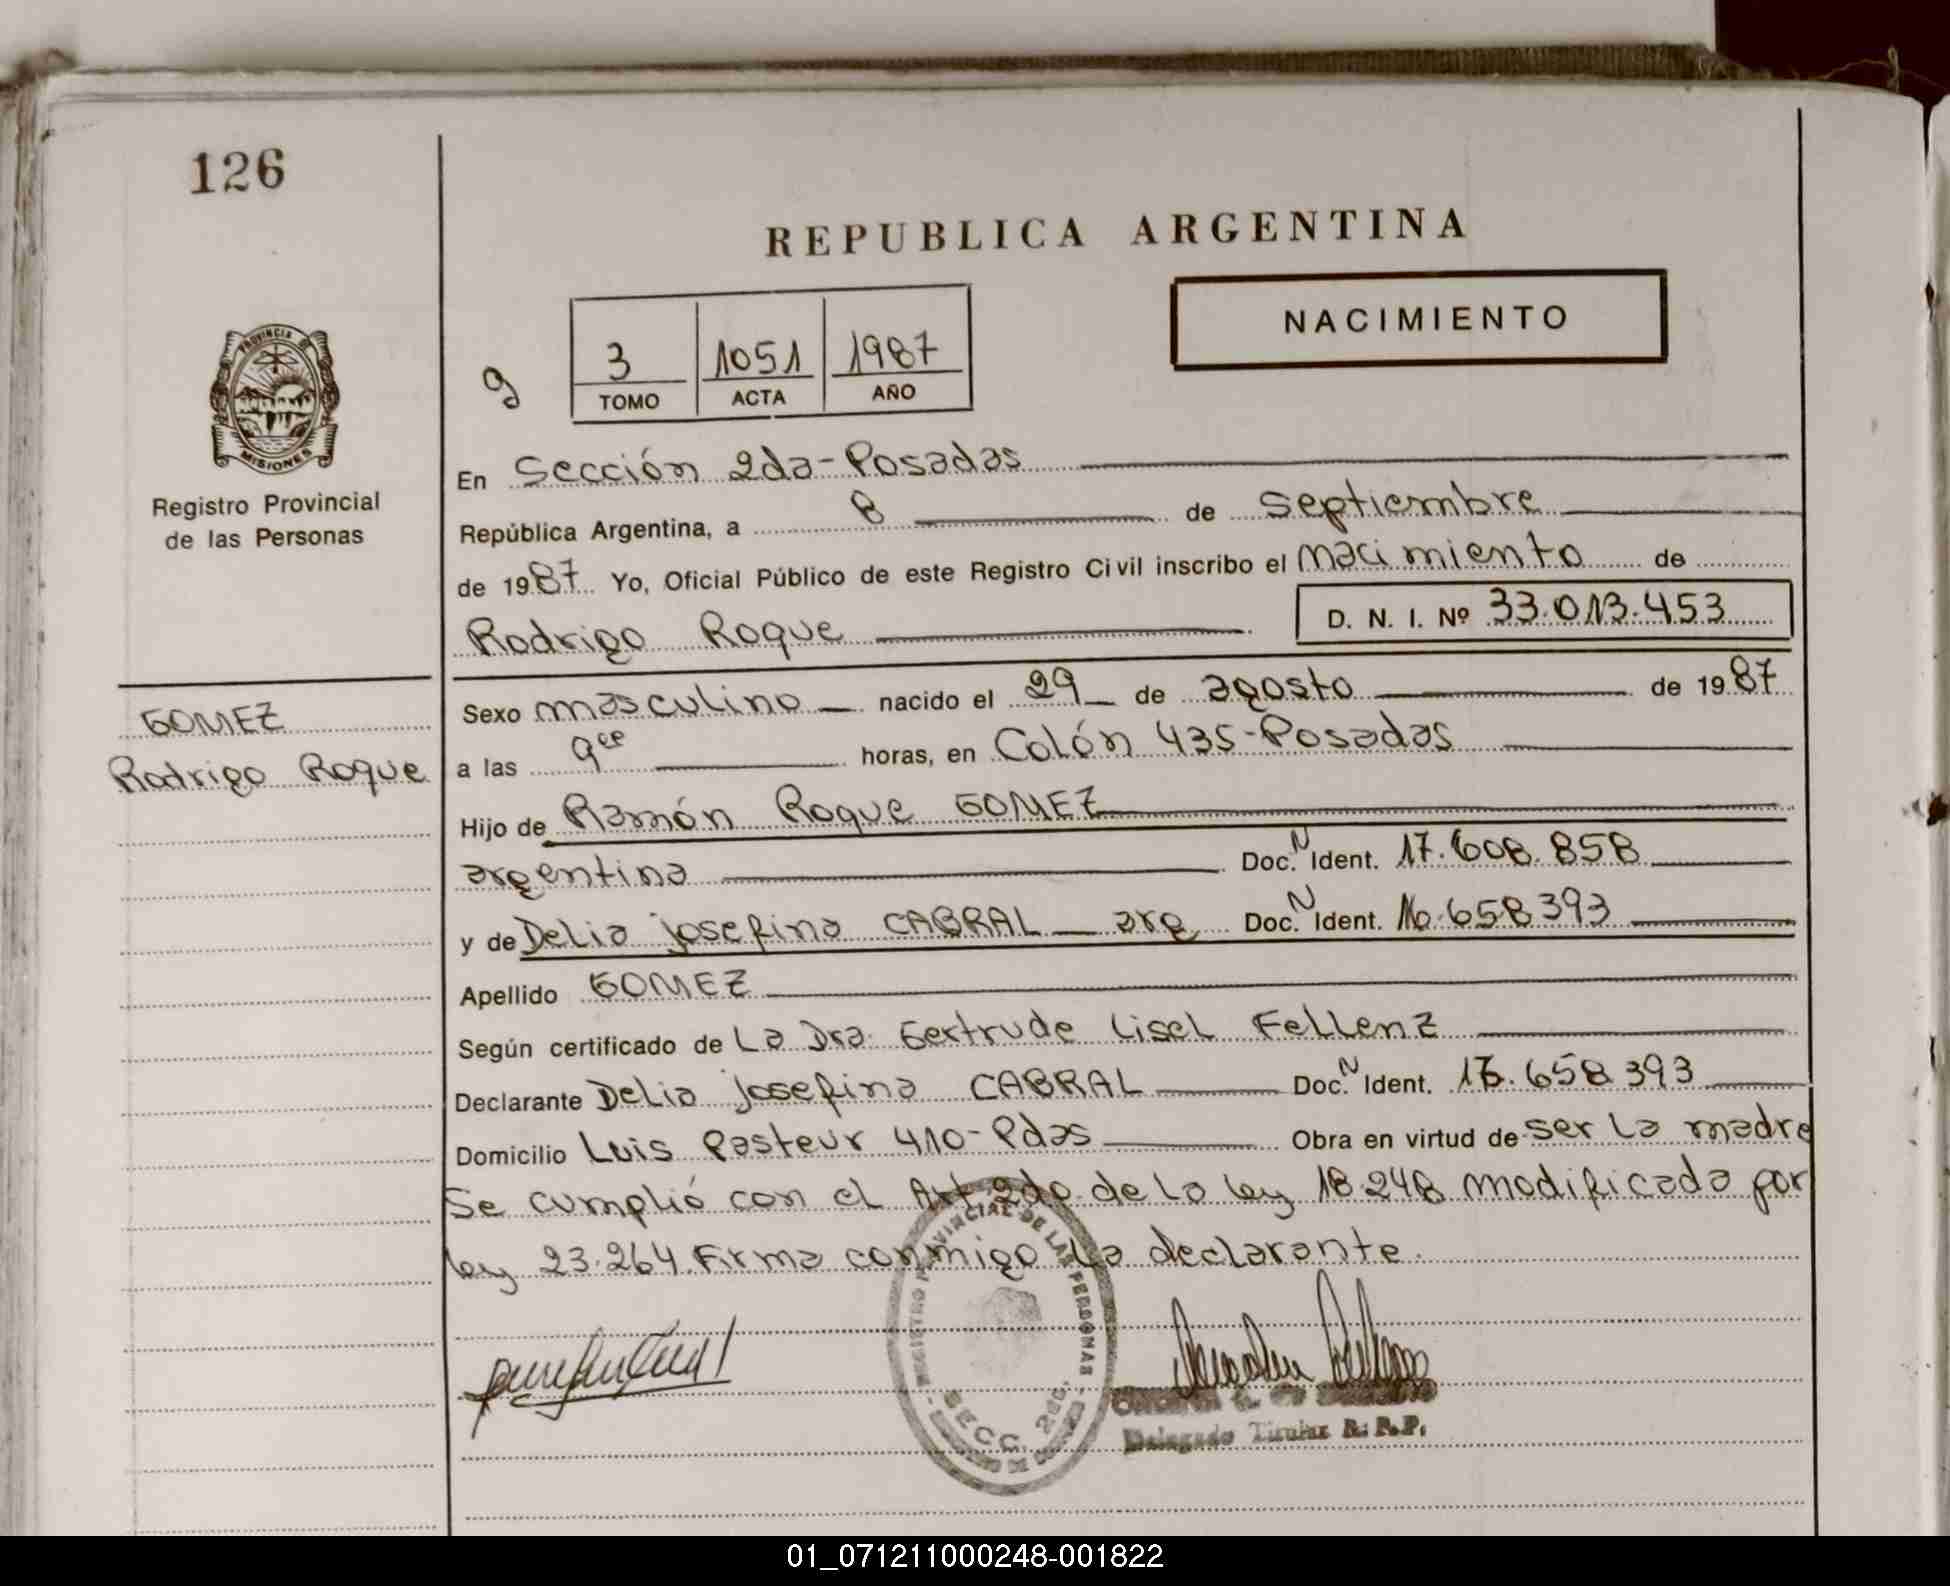 126
REPUBLICA ARGENTINA
NACIMIENTO
9
3 1051 1987
TOMO ACTA AÑO
PROVINCIA DE
MISIONES
Registro Provincial
de las Personas
En Sección 2da-Posadas
República Argentina, a 8 de septiembre
de 1987 Yo, Oficial Público de este Registro Civil inscribo el nacimiento de
D. N. I. Nº 33.013.453
Rodrigo Roque
GOMEZ
Rodrigo Roque
Sexo masculino nacido el 29 de agosto de 1987
a las 9 horas, en Colón 435-Posadas
Hijo de Ramón Roque GOMEZ
argentina Doc. N Ident. 17.608.858
y de Delia Josefina CABRAL arg Doc. N Ident. 16.658393
Apellido GOMEZ
Según certificado de La Dra. Gertrude Lisel Fellenz
Declarante Delia Josefina CABRAL Doc. N Ident. 16.658.393
Domicilio Luis Pasteur 410-Pdas Obra en virtud de ser la madre
Se cumplió con el Art 2do de la ley 18.248 modificada por
ley 23.264. Firma conmigo la declarante.
REGISTRO PROVINCIAL DE LAS PERSONAS
SECC. 2da.
Delegado Titular R. P. P.
01_071211000248-001822